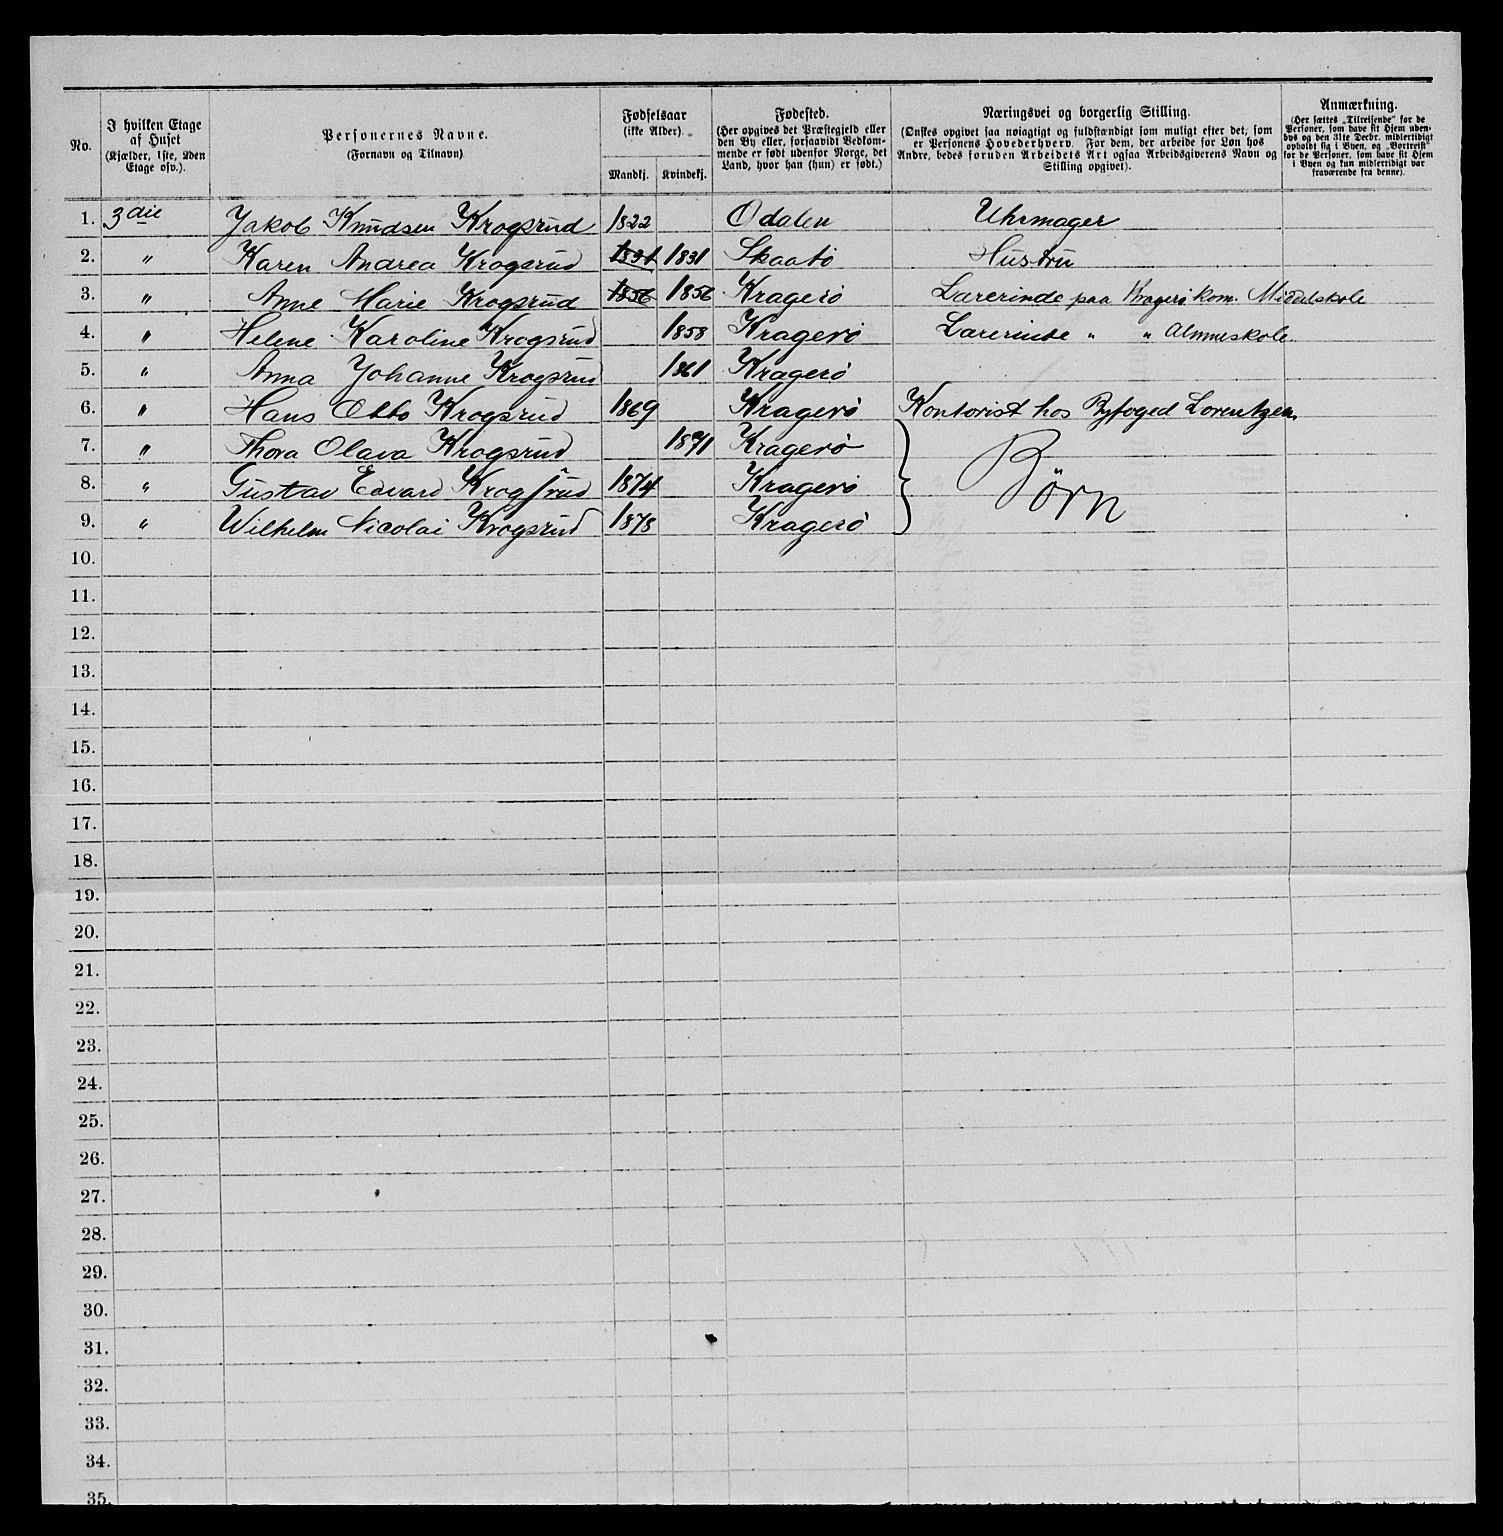 No. I hvilken Etage af Huset (Kjælder, 1ste, 2den Etage osv.). Personernes Navne. (Fornavn og Tilnavn) Fødselsaar (ikke Alder). Mandkj. Kvindekj. Fødested. (Her opgives det Præstegjeld eller den By eller, forsaavidt Vedkommende er født udenfor Norge, det Land, hvor han (hun) er født.) Næringsvei og borgerlig Stilling. (Ønskes opgivet saa nøiagtigt og fuldstændigt som muligt efter det, som er Personens Hovederhverv. For dem, der arbeide for Løn hos Andre, bedes foruden Arbeidets Art ogsaa Arbeidsgiverens Navn og Stilling opgivet). Anmærkning. (Her sættes „Tilreisende" for de Personer, som have sit Hjem udenbys og den 31te Decbr. midlertidigt opholdt sig i Byen, og „Bortreist" for de Personer, som have sit Hjem i Byen og kun midlertidigt var fraværende fra denne).
1. 3die Jakob Knudsen Krogsrud 1822 Odalen Uhrmager
2. " Karen Andrea Krogsrud 1831 1831 Skaatø Hustru
3. " Anne Marie Krogsrud 1856 1856 Kragerø Lærerinde paa Kragerø kom. Middelskole
4. " Helene Karoline Krogsrud 1858 Kragerø Lærerinde " " Almueskole.
5. " Anna Johanne Krogsrud 1861 Kragerø
6. " Hans Otto Krogsrud 1869 Kragerø Kontorist hos Byfoged Lorentzen.
7. " Thora Olava Krogsrud 1871 Kragerø
8. " Gustav Edvard Krogsrud 1874 Kragerø Børn
9. " Wilhelm Nicolai Krogsrud 1878 Kragerø
10.
11.
12.
13.
14.
15.
16.
17.
18.
19.
20.
21.
22.
23.
24.
25.
26.
27.
28.
29.
30.
31.
32.
33.
34.
35.